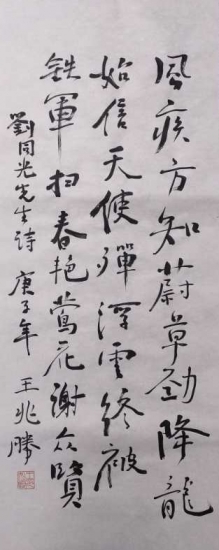 風疾方知蔚草勁降龍
始信天使彈浮雲終被
鉄軍扫春艳鶯花谢众賢
劉同光先生詩 庚子年 王兆勝